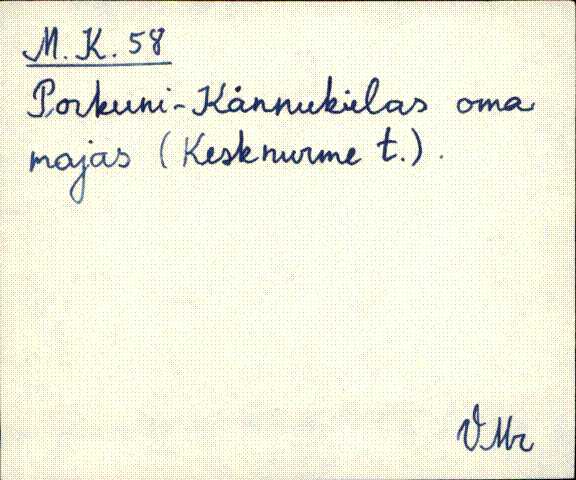 M. K. 58
Porkuni-Kännukülas oma
majas (Kesknurme t.).
VMr